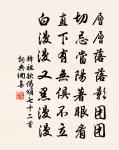 層層落落影團團
切忌當陽著眼看
直下有無俱不立
白漫漫又黑漫漫
釋祖欽偈頌七十二首
詞典網集